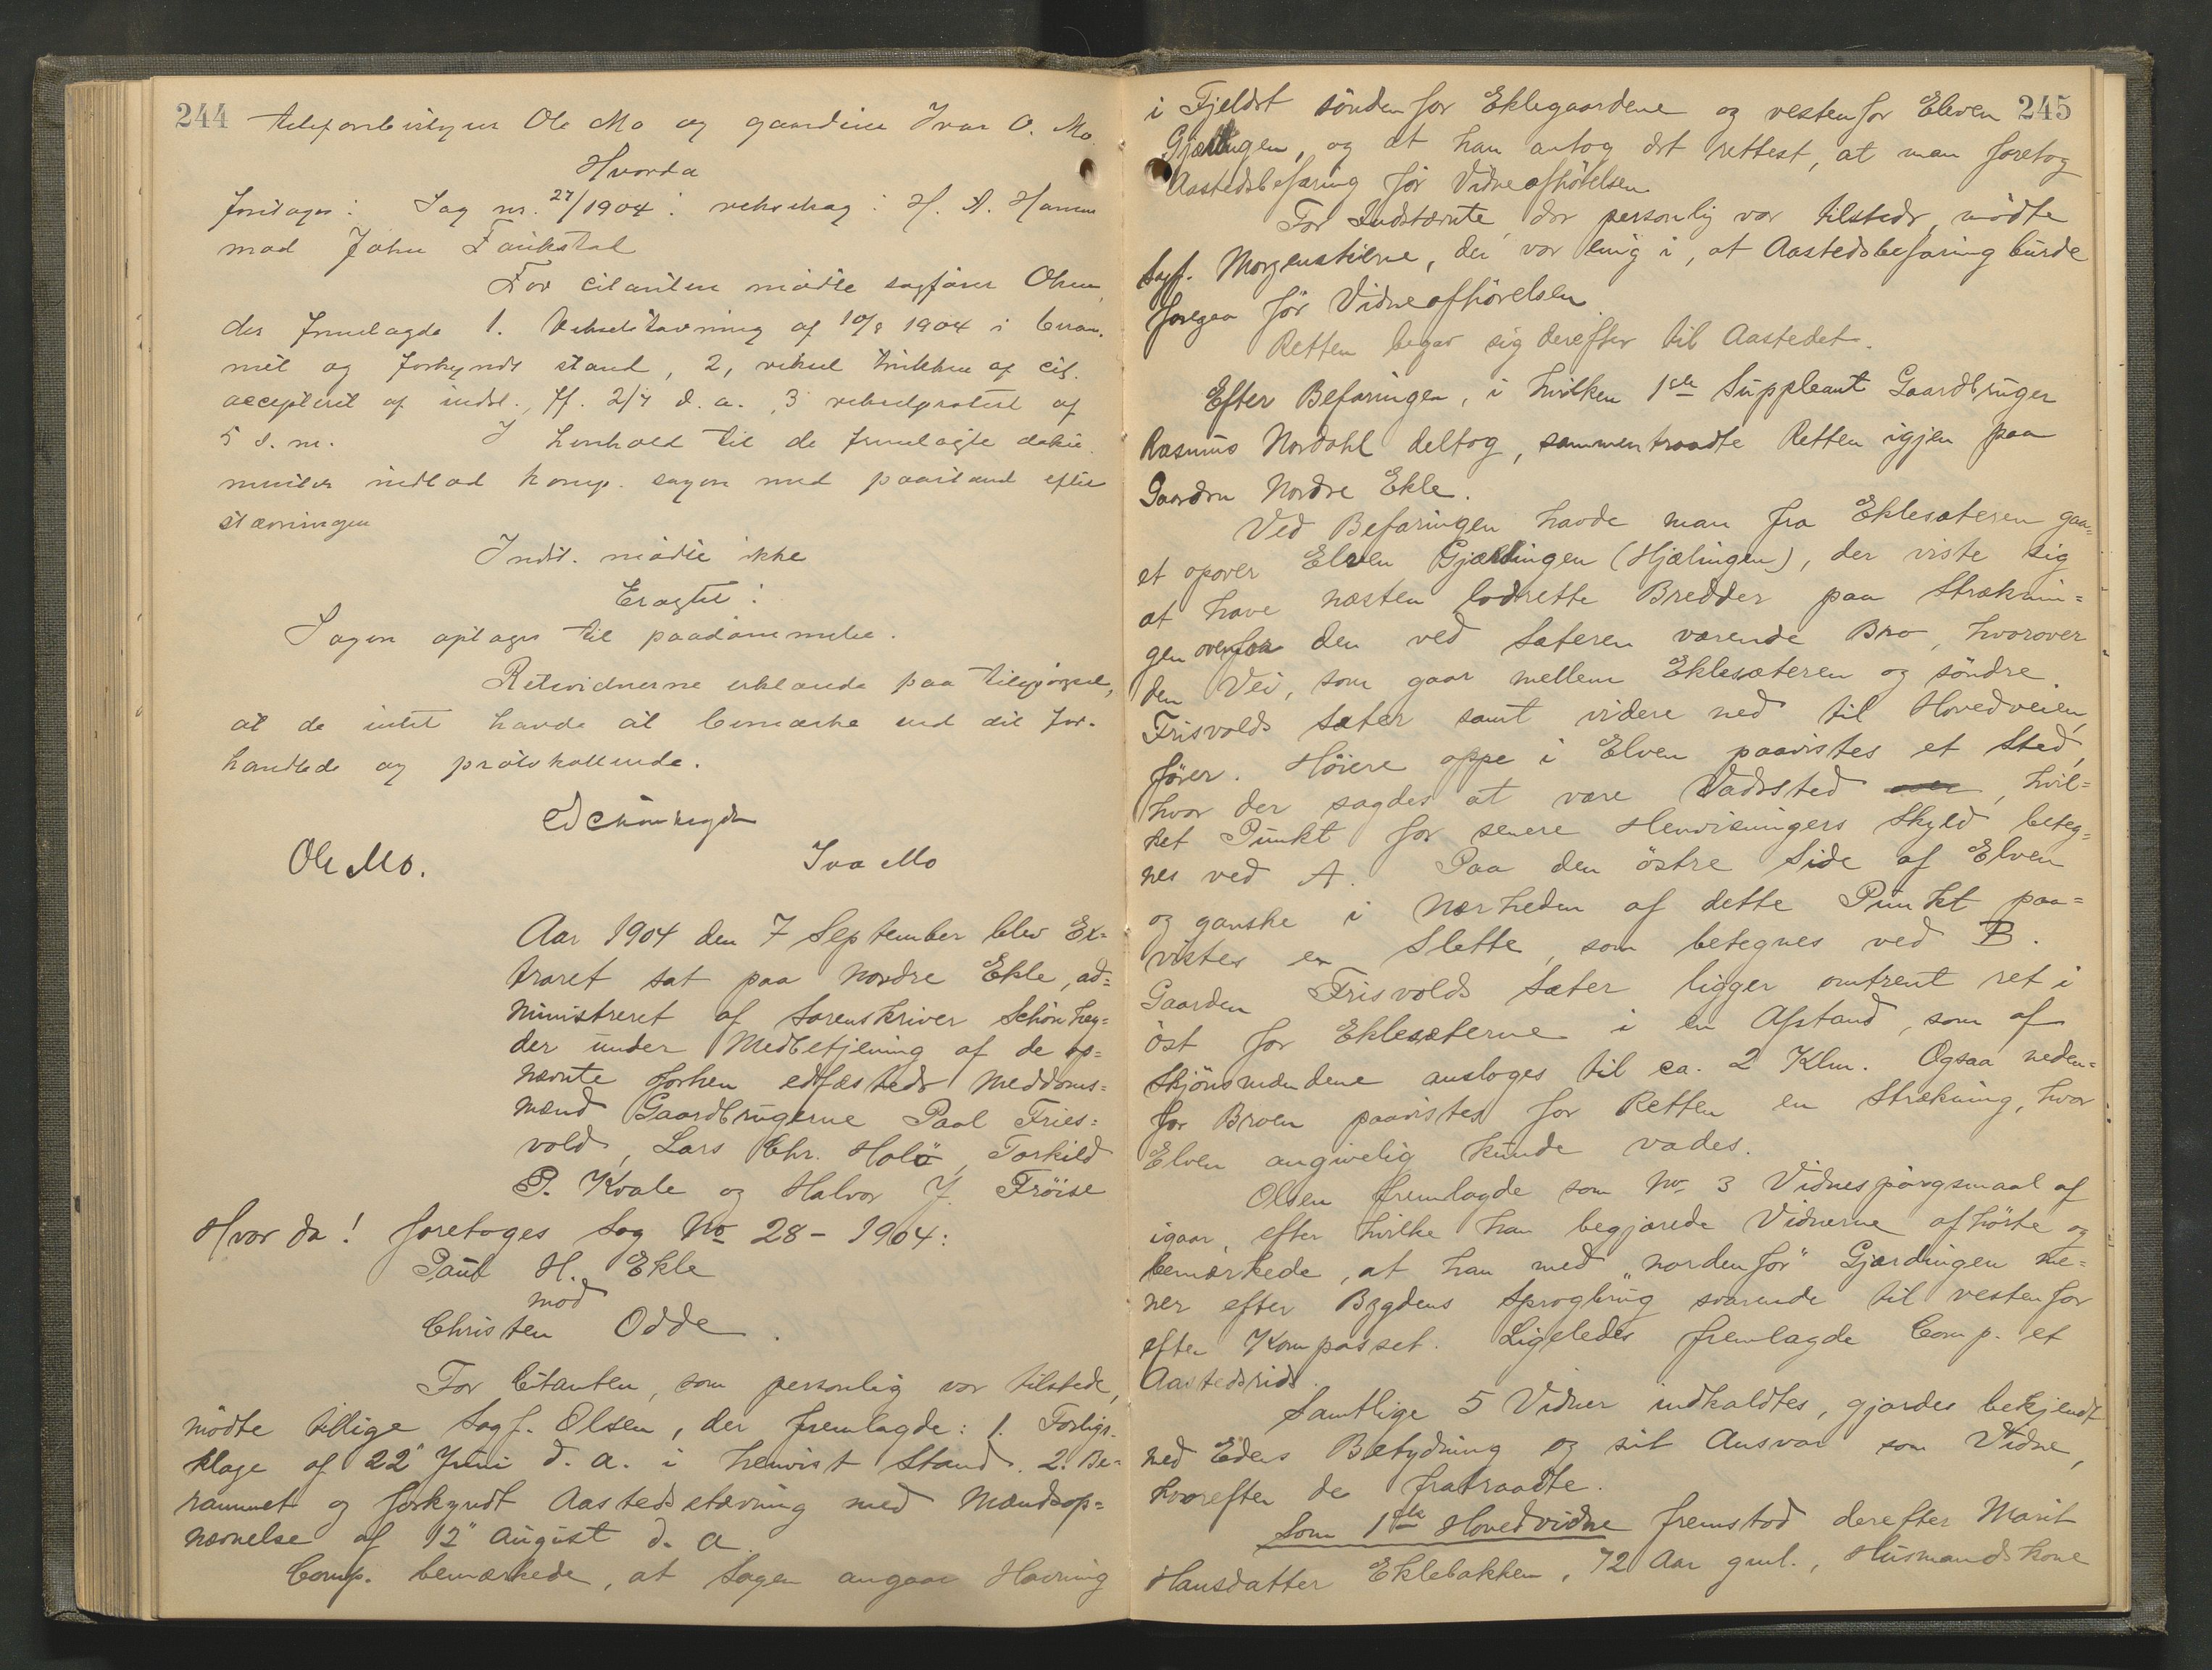 244
telefonbestyrer Ole Mo og gaardbr. Ivar O. Mo.
Hvorda
foretages: Sag nr. 27/1904: vekselsag: H. A. Hamm
mod John
For citanten mødte sagfører Olsen,
der fremlagde 1. Vekselstævning af 10/8 1904 i beram-
met og forkyndt stand, 2, veksel trukken af cit.
accepteret af indst., ff. 2/4 d. a., 3 vekselprotest af
5 s. m. I henhold til de fremlagte doku-
menter indlod komp. sagen med paastand efter
stævningen
Indst. mødte ikke
Eragtet:
Sagen optages til paadømmelse.
Retsvidnerne erklærede paa tilspørgsel,
at de intet havde at bemærke ved det for-
handlede og protokollerede.
EdSchönheyder
Ole Mo. Iva Mo
Aar 1904 den 7 September blev Ex=
traret sat paa Nordre Ekle, ad=
ministreret af Sorenskriver Schönhey=
der under Medbetjening af de op=
nævnte forhen edfæstede Meddoms=
mænd Gaardbrugerne Paal Fries=
vold, Lars Chr. Holö, Torkild
P. Kvale og Halvor J. Fröise
Hvor da! foretoges Sag No 28 - 1904:
Paul H. Ekle
mod
Christen Odde.
For Citanten, som personlig var tilstede,
mödte tillige Sagf. Olsen, der fremlagde: 1. Forligs-
klage af 22" Juni d. a. i henvist Stand. 2. Be-
rammet og forkyndt Aastedsstævning med Mændsop=
nævnelse af 12" August d. a.
Comp. bemærkede, at Sagen angaar Havning
245
i Fjeldet söndenfor Eklegaardene og vestenfor Elven
Gjærdingen, og at han antog det rettest, at man foretog
Aastedsbefaring för Vidneafhörelsen.
For Indstævnte, der personlig var tilstede, mödte
Sagf. Morgenstierne, der var enig i, at Aastedsbefaring burde
foregaa för Vidneafhörelsen.
Retten begav sig derefter til Aastedet.
Efter Befaringen, i hvilken 1ste Suppleant Gaardbruger
Rasmus Nordahl deltog, sammentraadte Retten igjen paa
Gaarden Nordre Ekle.
Ved Befaringen havde man fra Eklesæteren gaa=
et opover Elven Gjærdingen (Hjælingen), der viste sig
at have næsten lodrette Bredder paa Stræknin=
gen ovenfor den ved Sæteren værende Bro, hvorover
den Vei, som gaar mellem Eklesæteren og söndre
Frisvolds Sæter samt videre ned til Hovedveien,
förer. Höiere oppe i Elven paavistes et Sted,
hvor der sagdes at være Vadested, hvil=
ket Punkt for senere Henvisningers Skyld beteg=
nes ved A. Paa den östre Side af Elven
og ganske i Nærheden af dette Punkt paa=
vistes en Slette, som betegnes ved B.
Gaarden Frisvolds Sæter ligger omtrent ret i
öst for Eklesæterne i en Afstand, som af
Skjönsmændene ansloges til ca. 2 Klm. Ogsaa neden=
for Broen paavistes for Retten en Strækning, hvor
Elven angivelig kunde vades.
Olsen fremlagde som No 3 Vidnespörgsmaal af
igaar, efter hvilke han begjærede Vidnerne afhörte og
bemærkede, at han med "nordenfor" Gjærdingen me=
ner efter Bygdens Sprogbrug svarende til vestenfor
efter Kompasset. Ligeledes fremlagde Comp. et
Aastedsrids.
Samtlige 5 Vidner indkaldtes, gjordes bekjendt
med Edens Betydning og sit Ansvar som Vidne,
hvorefter de fratraadte.
Som 1ste Hovedvidne fremstod derefter Marit
Hansdatter Eklebakken, 72 Aar gml., Husmandskone